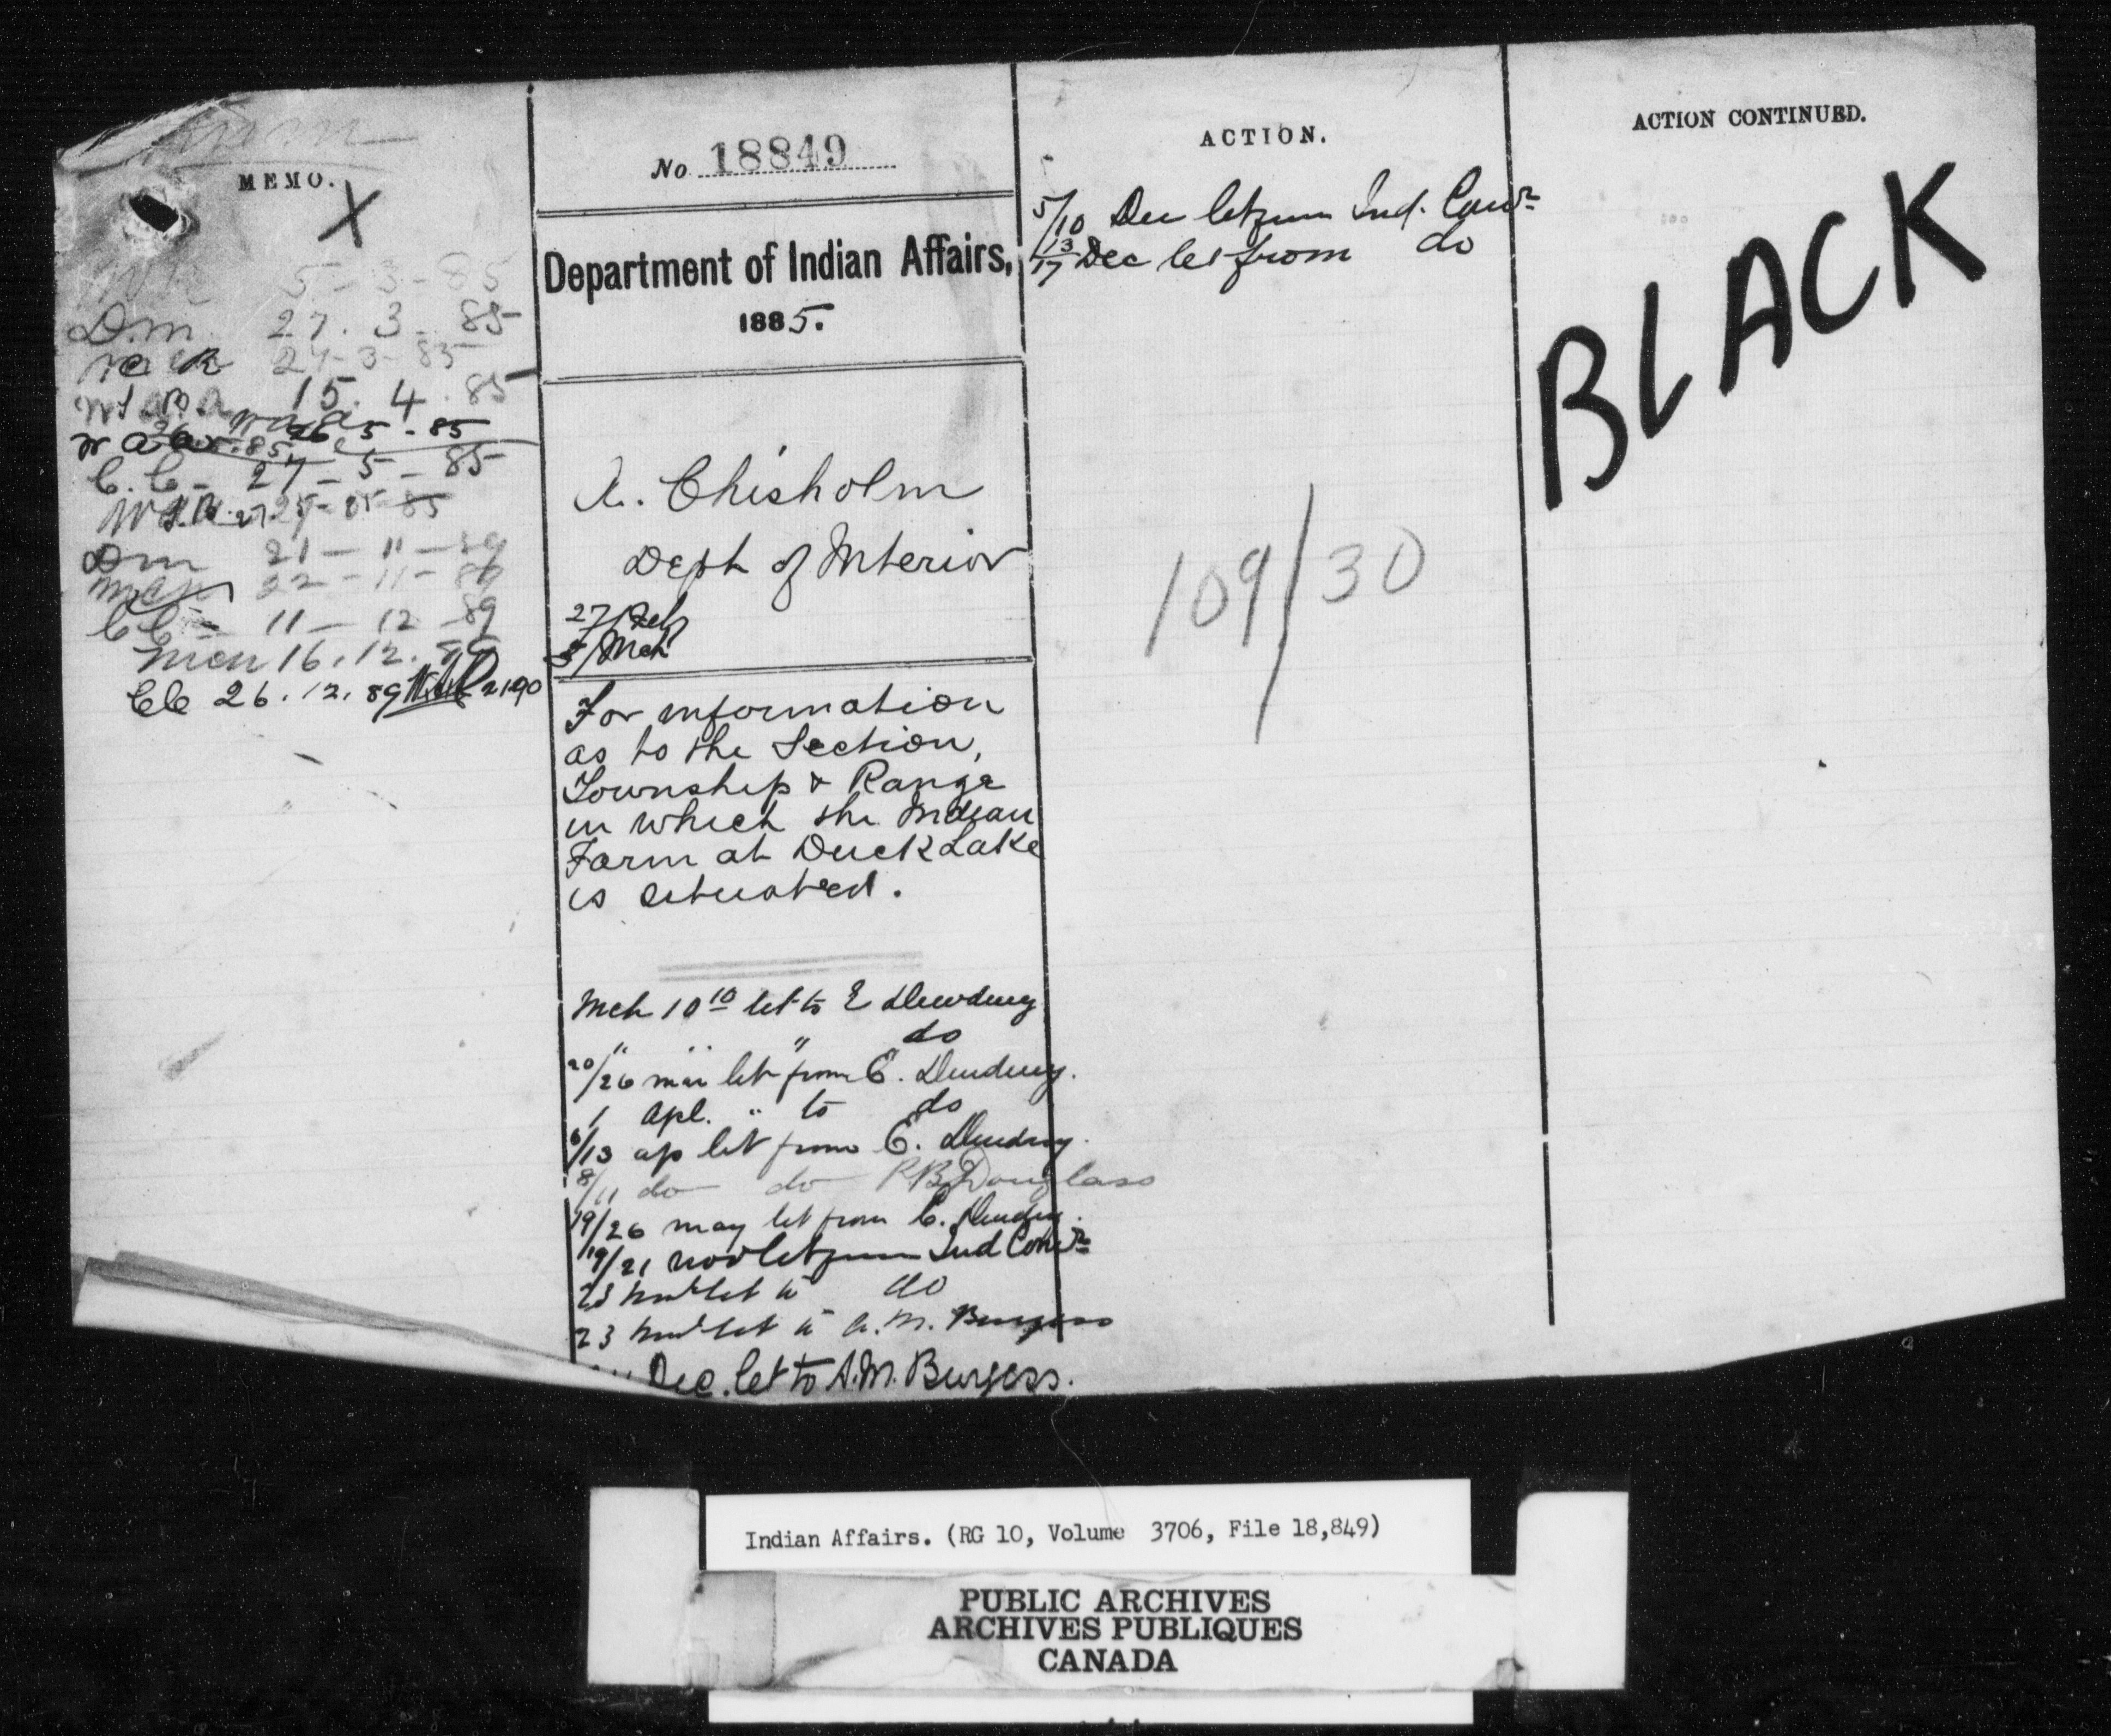 MEMO.
X
5-3-85
Dm 27.3.85
27-3-85
15.4.85
26.5-85
C.C- 27-5-85
Dm 21-11-89
22-11-89
CC- 11-12-89
16.12.89
CC 26.12.89
No 18849
Department of Indian Affairs,
1885.
A. Chisholm
Dept of Interior
27/Feb
5/Mch
For information
as to the Section,
Township & Range
in which the Indian
Farm at Duck Lake
is situated.
Mch 10 10 let to E Dewdney
" " " do
20/26 mar let from E. Dewdney.
1 Apl. " to do
6/13 ap let from E. Dewdney.
8/11 do do RB Douglass
19/26 may let from E. Dewdney.
19/21 nov let from Ind Comr
23 Nov let to do
23 Nov let to A.M. Burgess
Dec. let to A.M. Burgess.
ACTION.
5/10 Dec let from Ind. Comr
13/17 Dec let from do
109/30
ACTION CONTINUED.
BLACK
Indian Affairs. (RG 10, Volume 3706, File 18,849)
PUBLIC ARCHIVES
ARCHIVES PUBLIQUES
CANADA